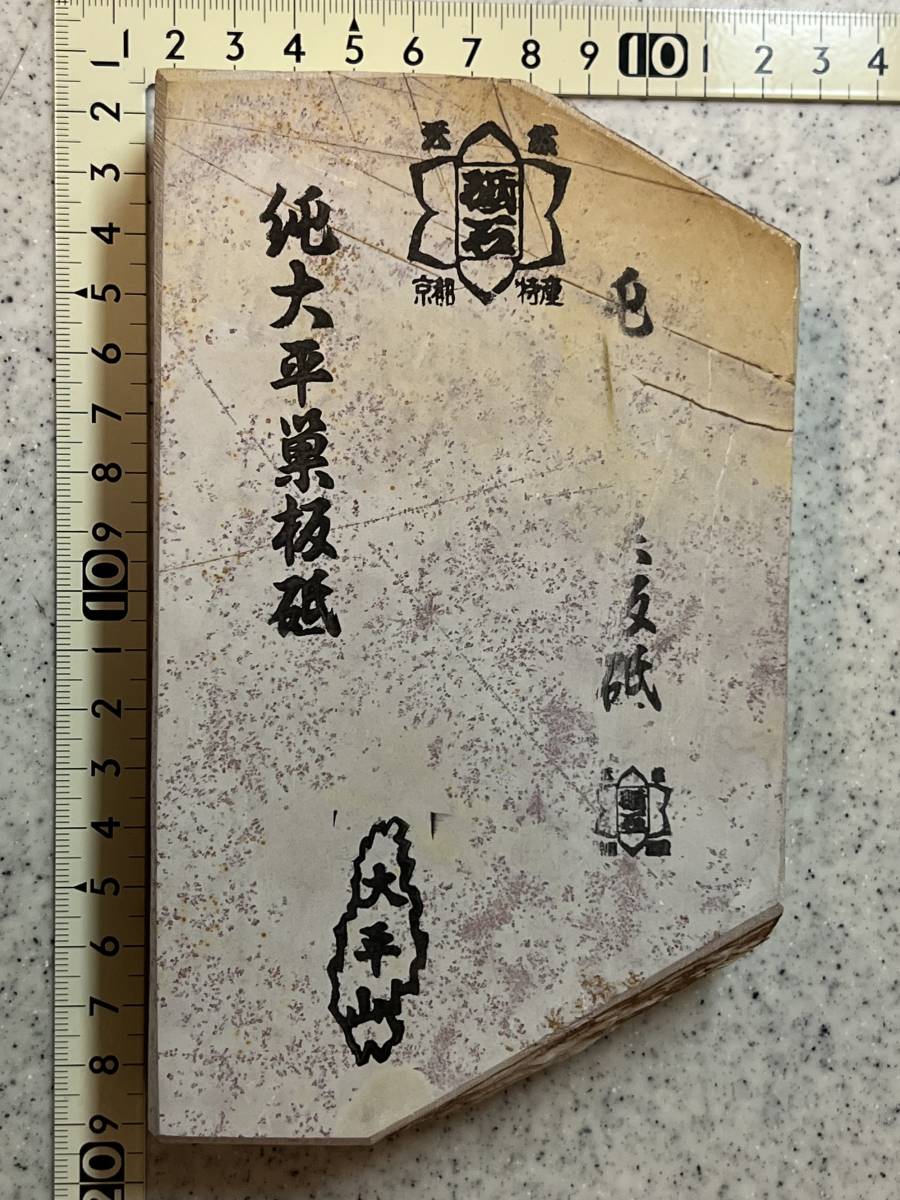 1 2 3 4 5 6 7 8 9 10 1 2 3 4
1 2 3 4 5 6 7 8 9 10 1 2 3 4 5 6 7 8 9 20
天然
砥石
京都 特産
純大平巣板砥
大平山
砥
砥石